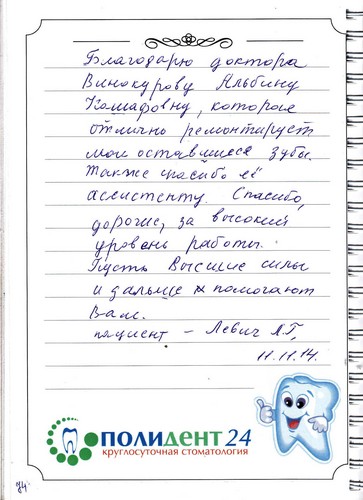 Благодарю доктора
Винокурову Альбину
Кашафовну, которая
отлично ремонтирует
мои оставшиеся зубы.
Также спасибо её
ассистенту. Спасибо,
дорогие, за высокий
уровень работы.
Пусть Высшие силы
и дальше помогают
Вам.
пациент – Левич Л.Г,
11.11.14.
ПОЛИДЕНТ 24
круглосуточная стоматология
84